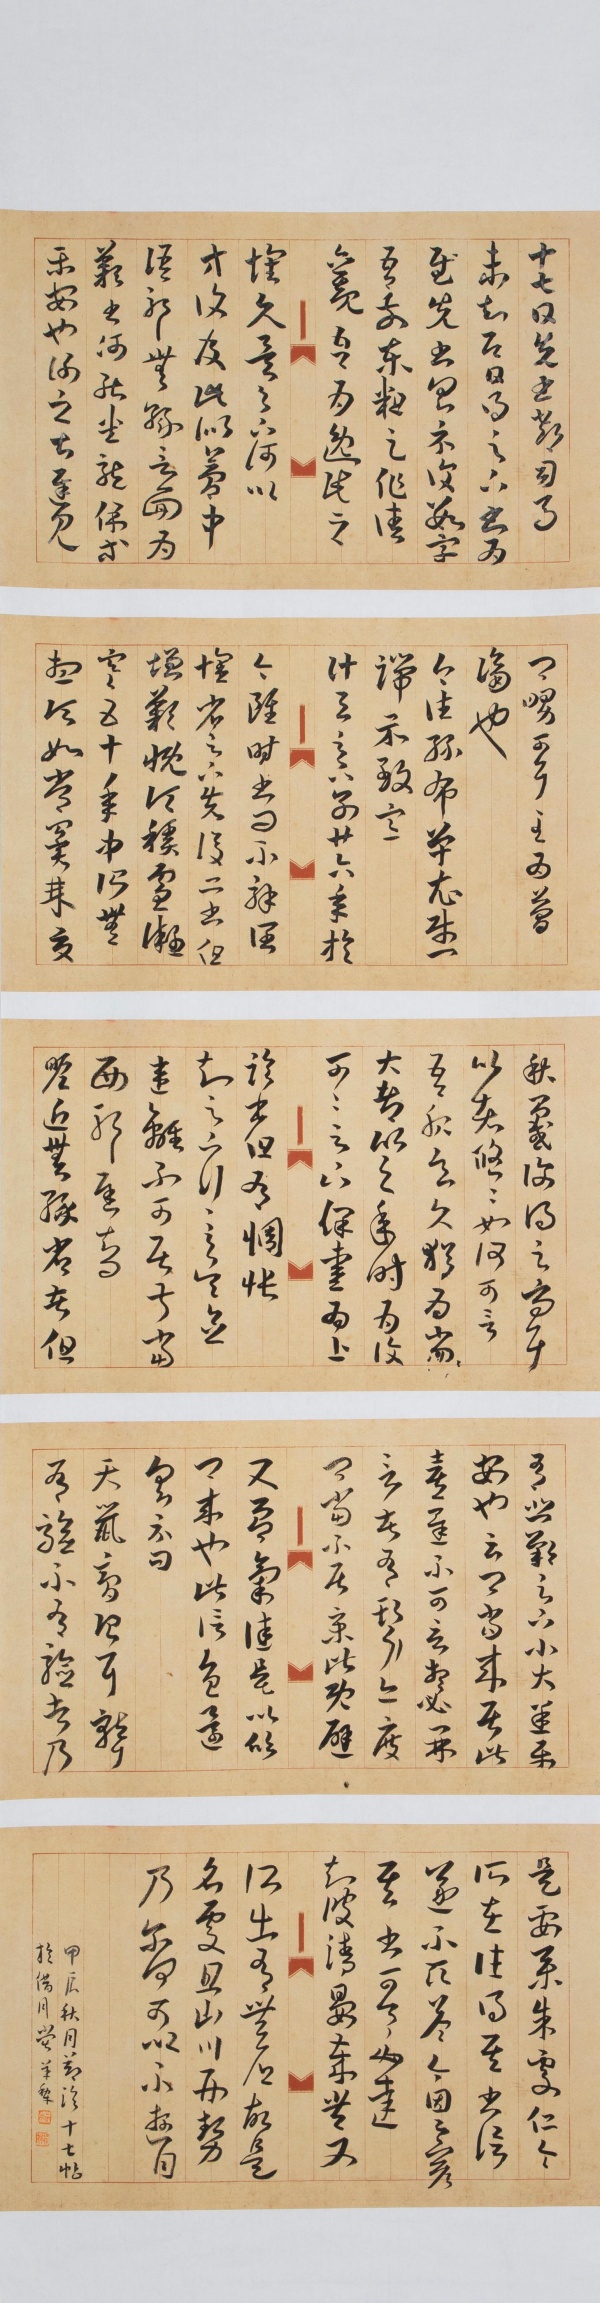 十七日先書郗司馬
未去即日得足下書為
慰先書以具示復數字
吾前東粗足作佳
觀吾為逸民之
懷久矣足下何以
方復及此似夢中
語耶無緣言面為
歎書何能悉龍保等
平安也謝之甚遲見
卿舅可耳至為簡
隔也
今往絲布單衣財一
端示致意
計與足下別廿六年於
今雖時書問不解闊
懷省足下先後二書但
增歎慨頃積雪凝
寒五十年中所無
想頃如常冀來夏
秋間或復得足下問耳
比者悠悠如何可言
吾服食久猶為劣劣
大都比之年時為復
可可足下保愛為上
臨書但有惆悵
知足下行至吳念
違離不可居叔當
西耶遲知問
瞻近無緣省告但
有悲歎足下小大悉平
安也云卿當來居此
喜遲不可言想必果
言告有期耳亦度
卿當不居京此既避
又節氣佳是以欣
卿來也此信旨還
具示問
天鼠膏治耳聾
有驗不有驗者乃
是要藥朱處仁今
所在往得其書信
遂不取答今因足下答
其書可令必達
知彼清晏歲豐又
所出有無鄉故是
名處且山川形勢
乃爾何可以不遊目
甲辰秋月節臨十七帖
於借月堂